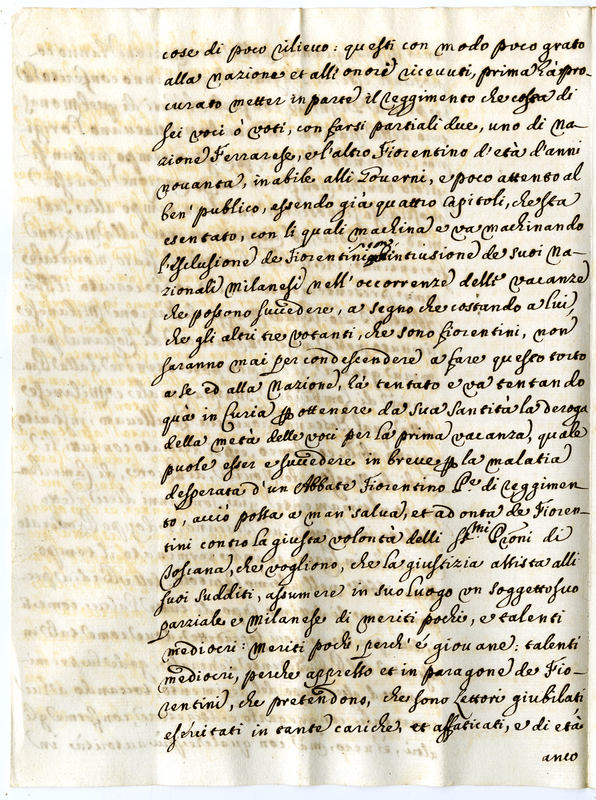 cose di poco rilieuo: questi con modo poco grato
alla nazione et alli onori riceuuti, prima hà pro-
curato metter in parte il reggimento che costa di
sei voci ò voti, con farsi partiali due, uno di na-
zione Ferrarese, e l'altro Fiorentino d'età d'anni
nouanta, inabile alli Gouerni, e poco attento al
ben' publico, essendo già quattro Capitoli, che sta
esentato, con li quali machina e va machinando
l'esclusione de Fiorentini intrusione de suoi Na-
zionali Milanesi nell'occorrenze delle vacanze
che possono succedere, a segno che costando a lui,
che gli altri tre votanti, che sono fiorentini, non
saranno mai per condescendere a fare questo torto
a se ed alla Nazione, hà tentato e va tentando
quà in Curia per ottenere da sua Santità la deroga
della metà delle voci per la prima vacanza, quale
puole esser e succedere in breue per la malatia
desperata d'un Abbate Fiorentino Pe. di reggimen-
to, acciò possa a man' salua, et ad onta de Fioren-
tini contro la giusta volontà delli Ssmi Proni di
Toscana, che vogliono, che la giustizia assista alli
suoi sudditi, assumere in suo luogo un soggetto suo
parziale e Milanese di meriti pochi, e talenti
mediocri: Meriti pochi, perch' é giouane: talenti
mediocri, perche appresso et in paragone de Fio-
rentini, che pretendono, che sono Lettori giubilati
esercitati in tante cariche, et affaticati, e di età
anco